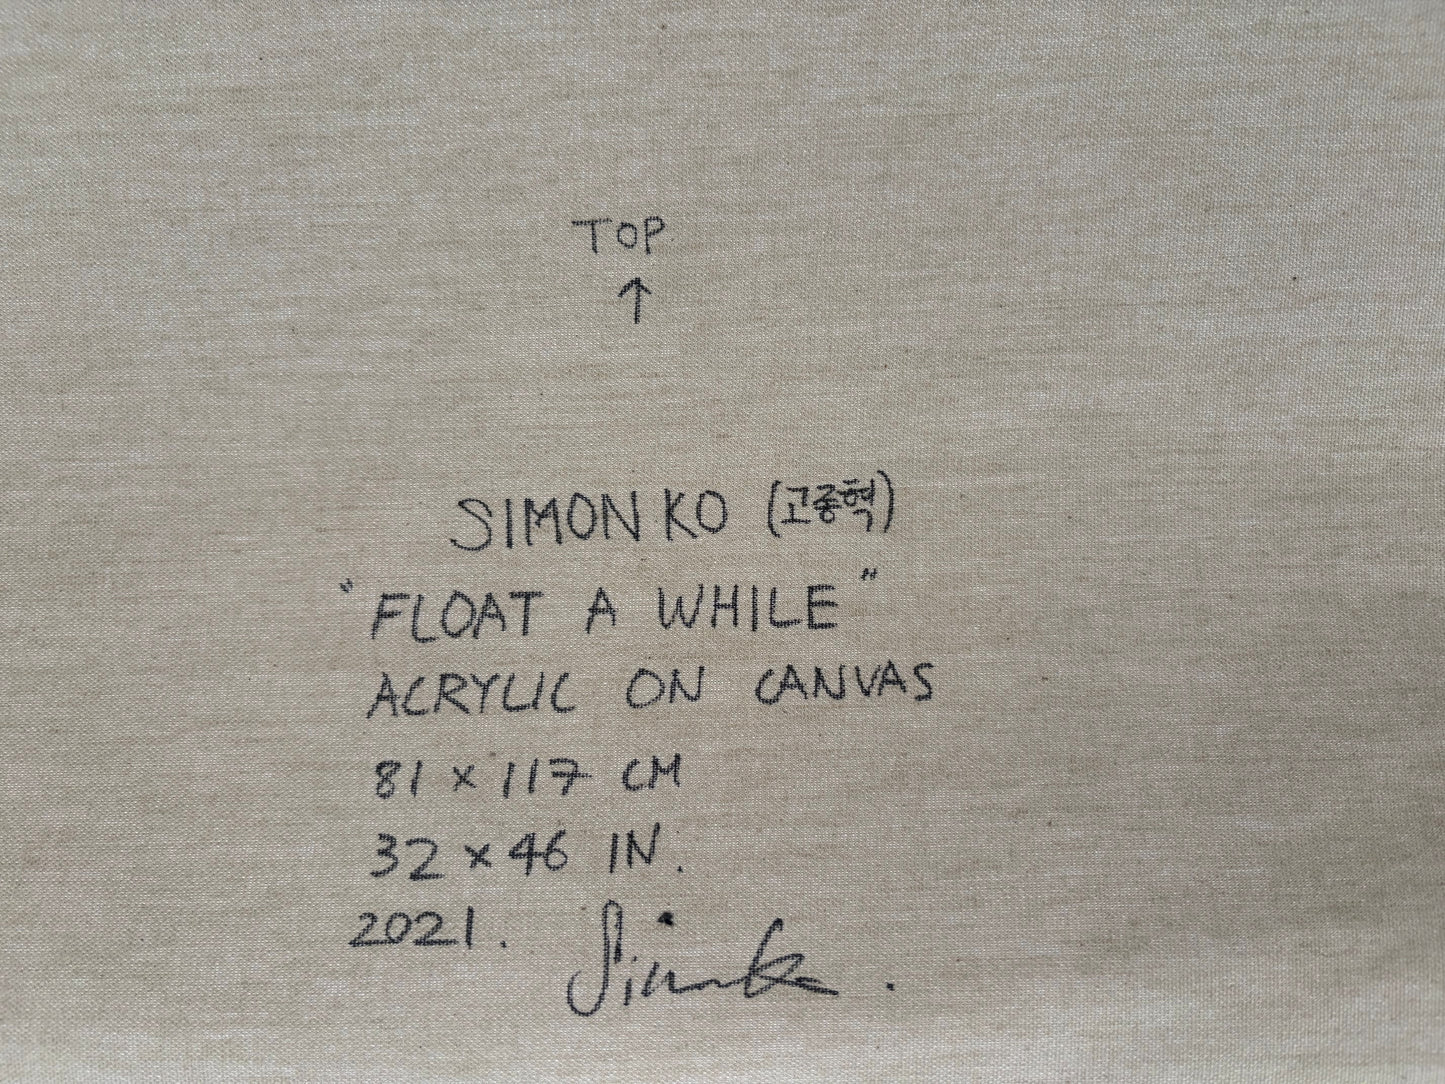 TOP
↑
SIMON KO (고종혁)
"FLOAT A WHILE"
ACRYLIC ON CANVAS
81 x 117 CM
32 x 46 IN.
2021.
Simon Ko.